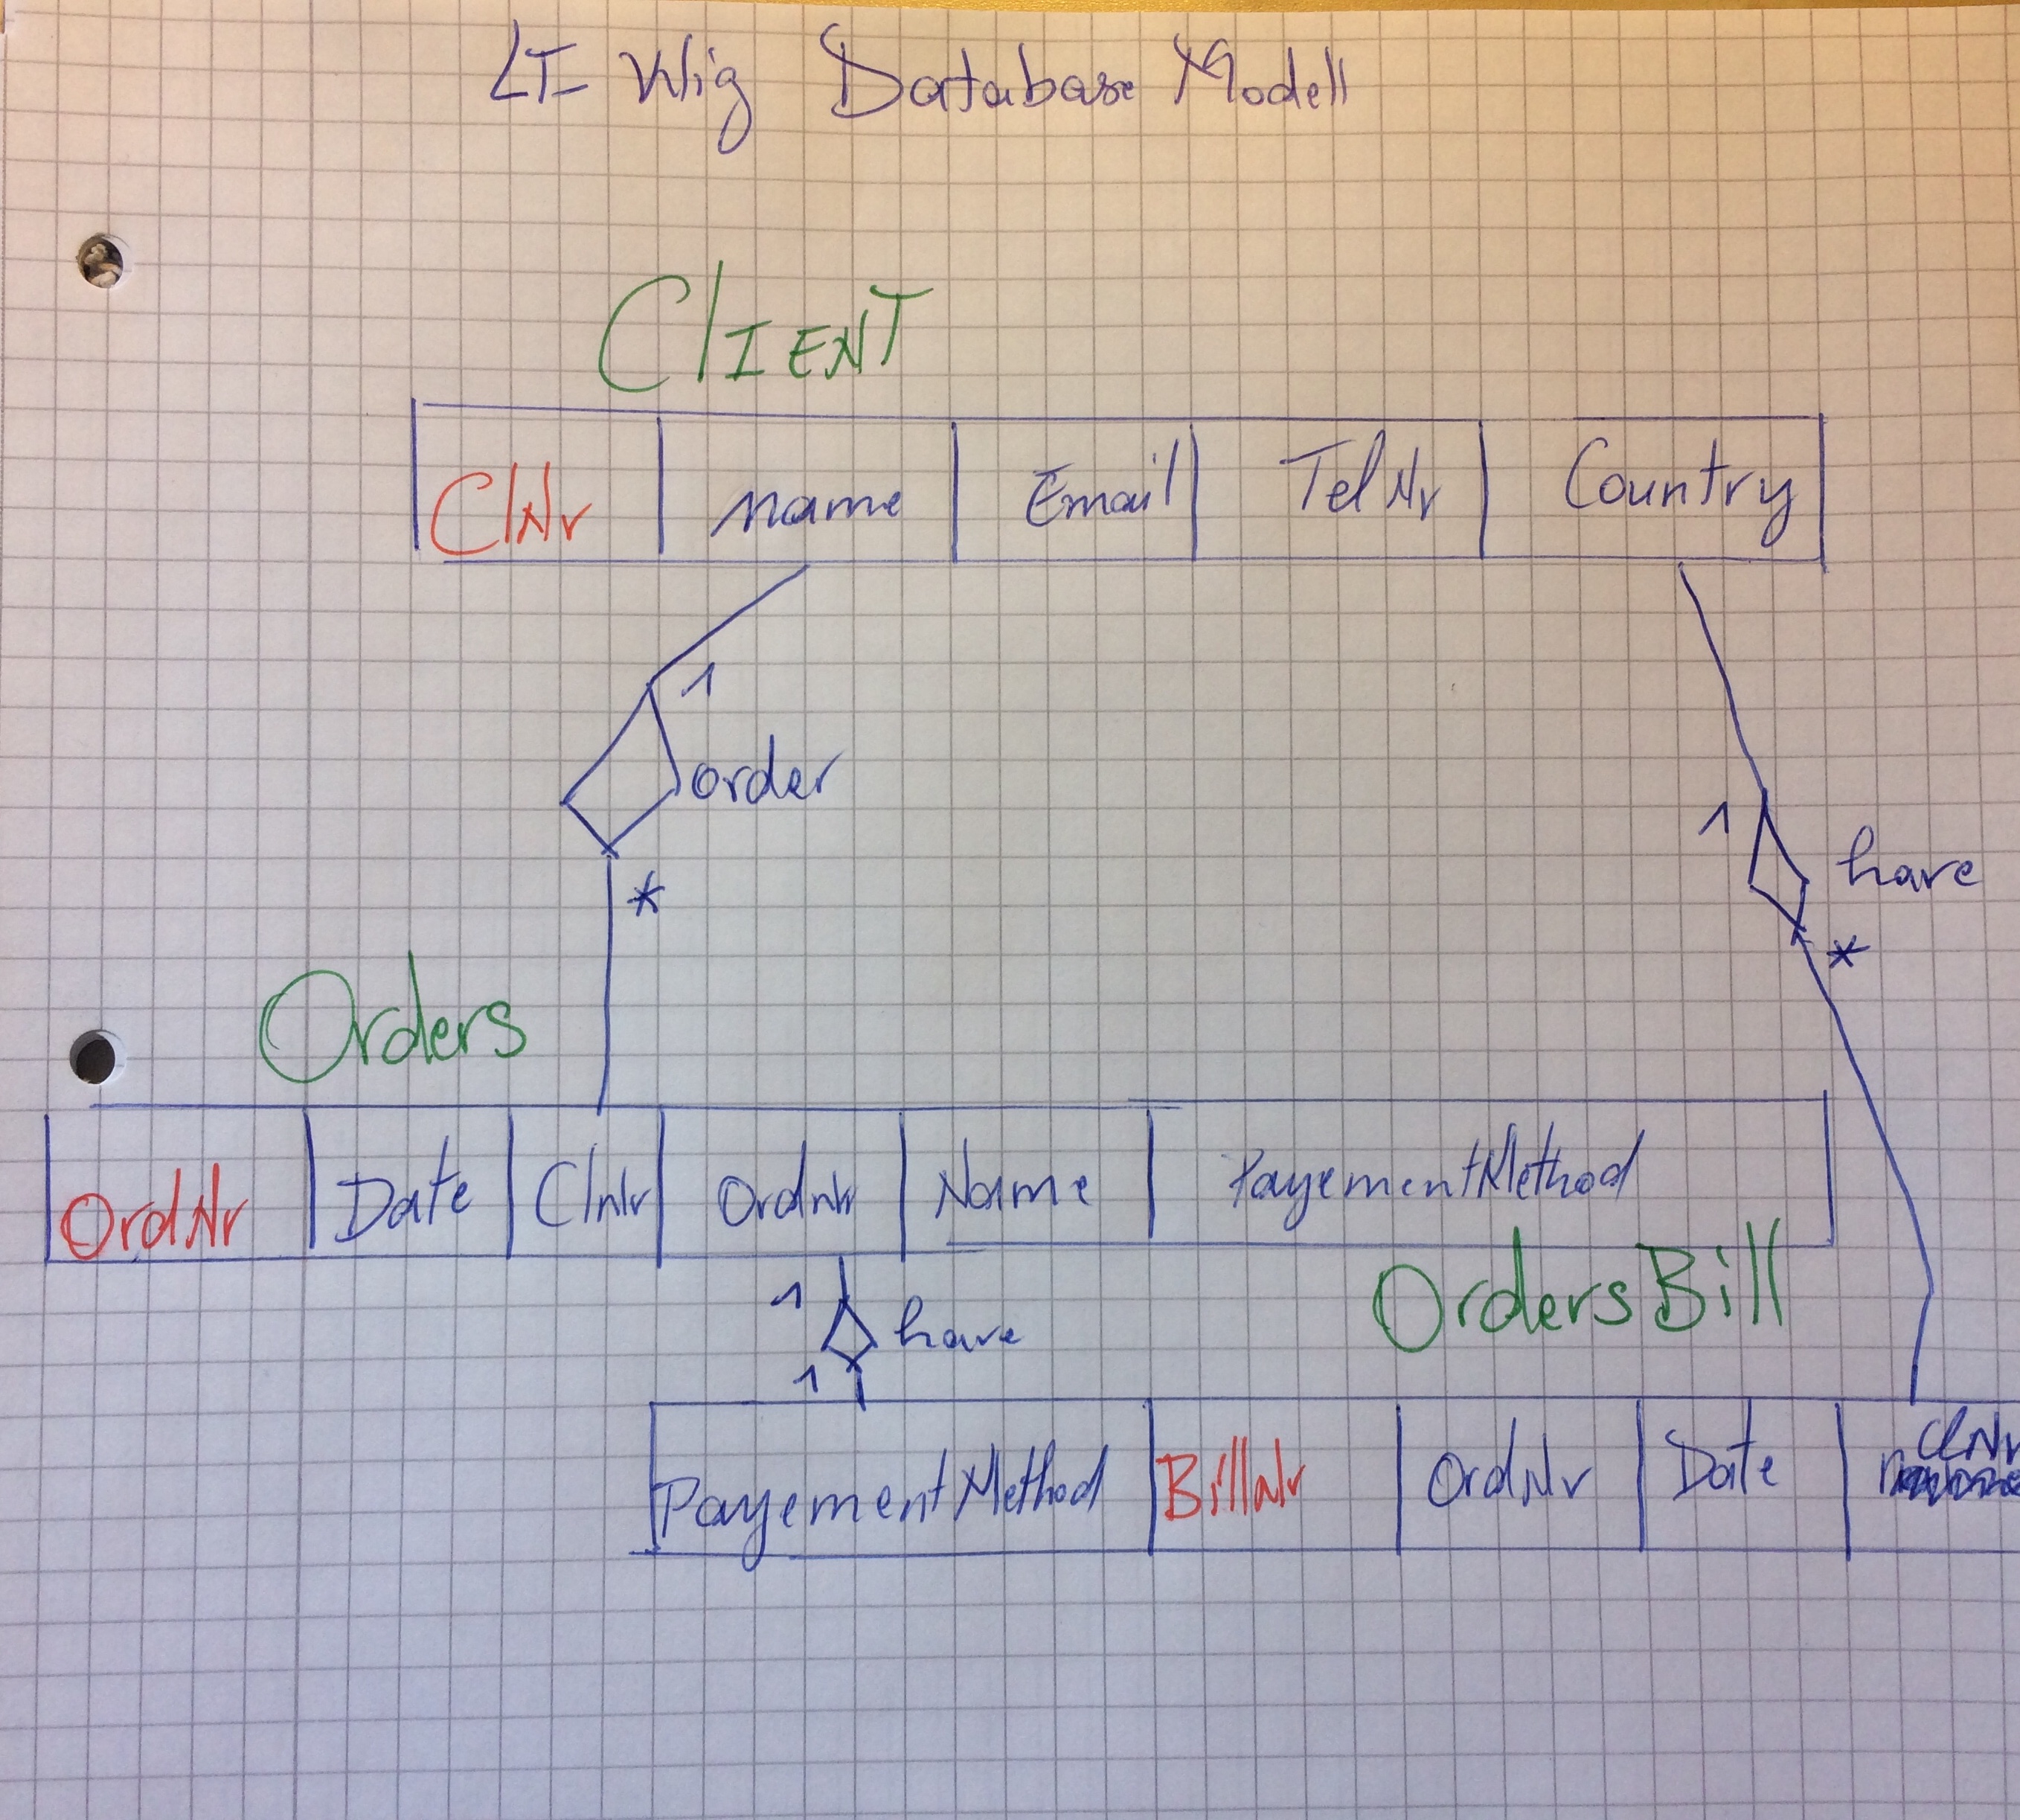 LT- Wig Database Modell
ClIENT
ClNr name Email TelNr Country
1
order
1
have
*
*
Orders
OrdNr Date Clnr Ordnr Name PayementMethod
1
have
OrdersBill
1
PayementMethod BillNr OrdNr Date ClNr